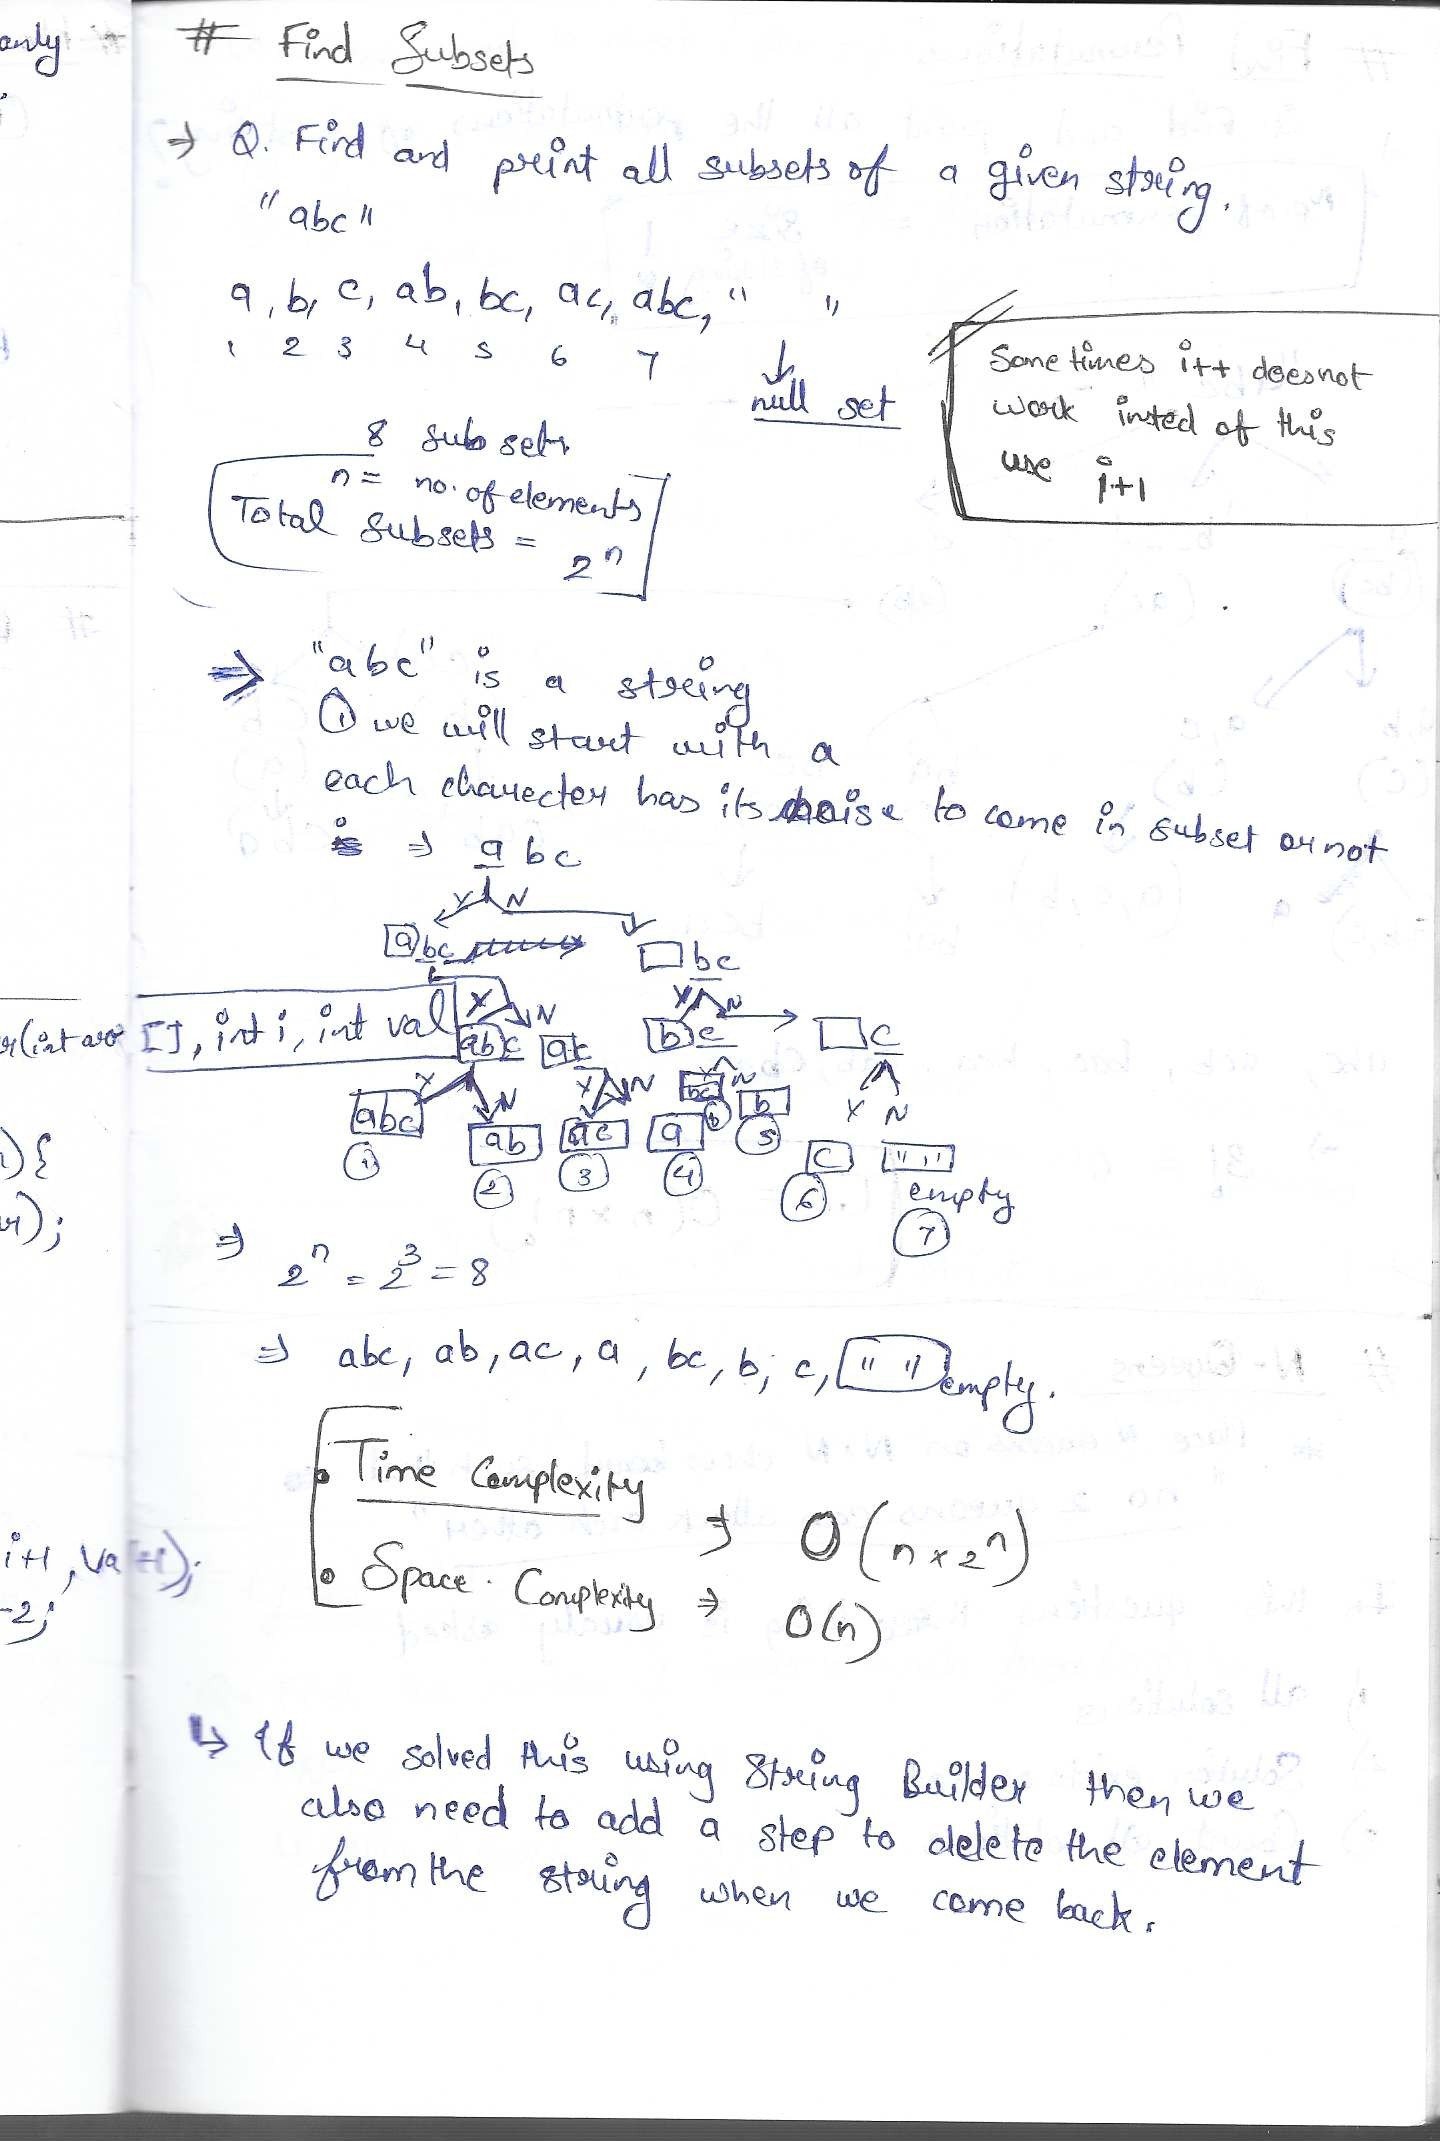 only
# Find Subsets
⇒ Q. Find and print all subsets of a given string.
"abc"
a, b, c, ab, bc, ac, abc, " "
1 2 3 4 5 6 7
null set
Sometimes i++ doesnot
work insted of this
use i+1
8 subsets
n = no. of elements
Total subsets = 2^n
⇒ "abc" is a string
① we will start with a
each charecter has its choise to come in subset or not
⇒ abc
Y N
a bc
bc
[], int i, int val
Y N Y N
ab c ac b c c
Y N Y N Y N Y N
abc ab ac a bc b c " "
① ② ③ ④ ⑥ ⑤ ⑥ empty ⑦
) {
);
⇒ 2^n = 2^3 = 8
⇒ abc, ab, ac, a, bc, b, c, " " empty.
• Time Complexity ⇒ O(n x 2^n)
i+1, val+1);
• Space Complexity ⇒ O(n)
-2;
↳ If we solved this using String Builder then we
also need to add a step to delete the element
from the string when we come back.